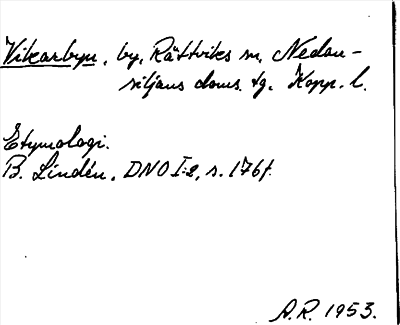 Vikarbyn, by, Rättviks sn, Nedan-
siljans doms. tg. Kopp. l.
Etymologi.
B. Lindén, DNO I:2, s. 176f.
A.R. 1953.